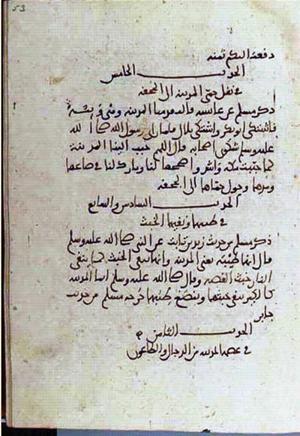 دفعت اليكم ثمنه
الحديث الخامس
في نقل حمى المدينة الى الجحفة
ذكر مسلم عن عائشة قالت قدمنا المدينة وهي وبيئة
فاشتكى ابو بكر واشتكى بلال فلما راى رسول الله صلى الله
عليه وسلم شكوى اصحابه قال اللهم حبب الينا المدينة
كما حببت مكة او اشد وصححها لنا وبارك لنا في صاعها
ومدها وحول حماها الى الجحفة
الحديث السادس والسابع
في طيبها ونفيها الخبث
ذكر مسلم من حديث زيد بن ثابت عن النبي صلى الله عليه وسلم
قال انها طيبة يعني المدينة وانها تنفي الخبث كما تنفي
النار خبث الفضة وقال صلى الله عليه وسلم انما المدينة
كالكير تنفي خبثها وينصع طيبها خرجه مسلم من حديث
جابر
الحديث الثامن
في عصمة المدينة من الدجال والطاعون